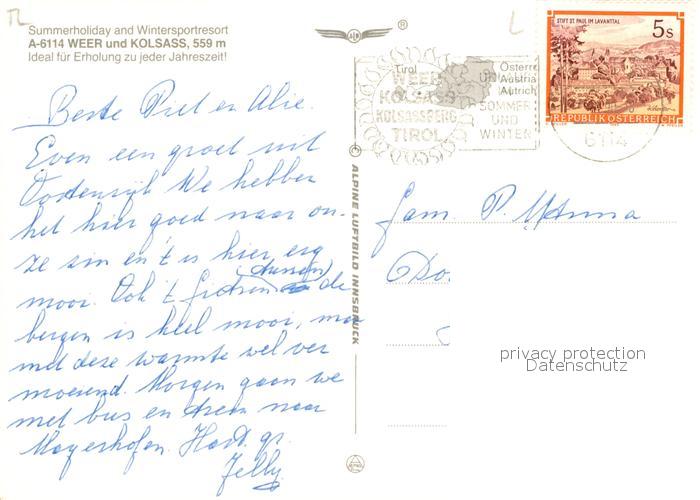 Summerholiday and Wintersportresort
A-6114 WEER und KOLSASS, 559 m
Ideal für Erholung zu jeder Jahreszeit!
Beste Piet en Alie.
Even een groet uit
Oostenrijk We hebben
het hier goed naar on-
ze zin en 't is hier erg
mooi. Ook 't fietsen (tussen) de
bergen is heel mooi, maar
met deze warmte wel ver
moeiend. Morgen gaan we
met bus en trein naar
Mayerhofen. Hart. gr.
Jelly
© ALPINE LUFTBILD INNSBRUCK
®
Tirol
WEER
KOLSASS
KOLSASSBERG
TIROL
Österr
Austria
Autrich
SOMMER
UND
WINTER
STIFT ST. PAUL IM LAVANTTAL
5s
REPUBLIK ÖSTERREICH
6114
fam. P.
Do.
privacy protection
Datenschutz